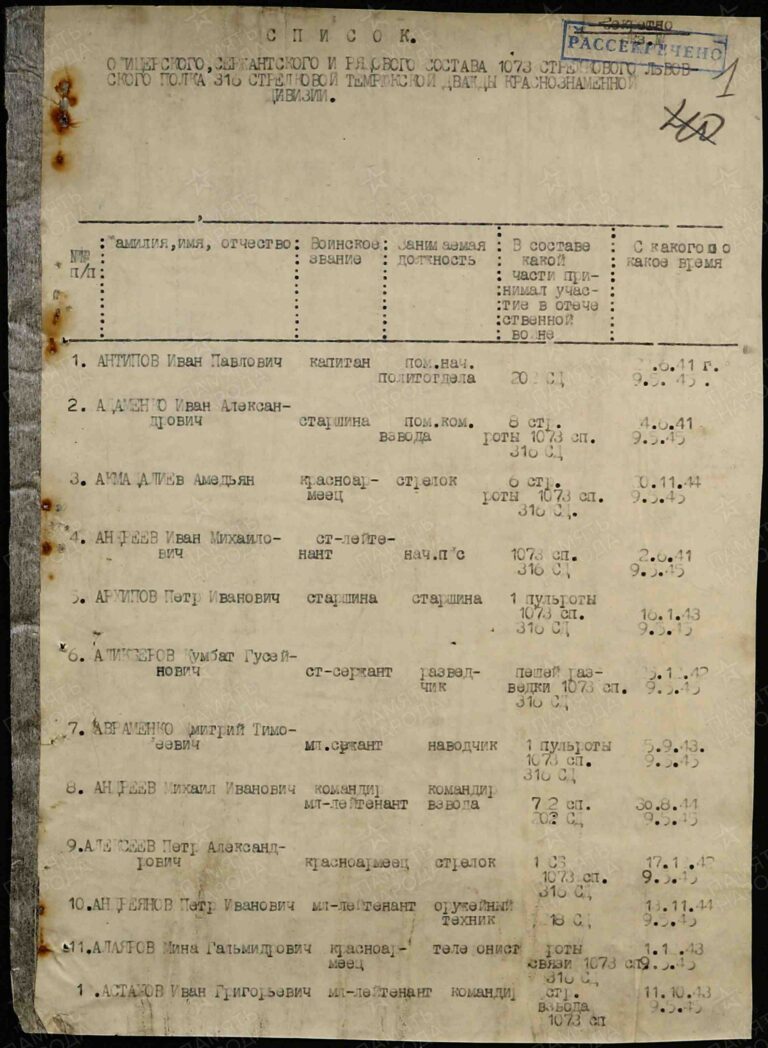 СПИСОК.
Секретно
РАССЕКРЕЧЕНО
1
40
ОФИЦЕРСКОГО, СЕРЖАНТСКОГО И РЯДОВОГО СОСТАВА 1073 СТРЕЛКОВОГО ЛЬВОВ-
СКОГО ПОЛКА 316 СТРЕЛКОВОЙ ТЕМРЮКСКОЙ ДВАЖДЫ КРАСНОЗНАМЕННОЙ
ДИВИЗИИ.
№№ п/п: Фамилия, имя, отчество: Воинское звание: Занимаемая должность: В составе какой части при-нимал учас-тие в отече ственной войне: С какого по какое время
1. АНТИПОВ Иван Павлович капитан пом.нач.
политотдела СД 9.5.45
2. АДАМЕНКО Иван Алексан-
дрович старшина пом.ком. 8 стр. 4.6.41
взвода роты 1073 сп. 9.5.45
316 СД
3. Амедьян красноар- стрелок 6 стр. .11.44
меец роты 1073 сп. 9.5.45
316 СД.
4. АНДРЕЕВ Иван Михайло- ст-лейте-
вич нант 1073 сп. 2.6.41
316 СД 9.5.45
5. АРХИПОВ Петр Иванович старшина старшина 1 пульроты
1073 сп. 16.1.43
316 СД 9.5.45
6. Гусей-
нович ст-сержант развед- пешей раз-
чик ведки 1073 сп. 9.5.45
316 СД
7. АВРАМЕНКО Дмитрий Тимо-
феевич мл.сржант наводчик 1 пульроты 5.9.43.
1073 сп. 9.5.45
316 СД
8. АНДРЕЕВ Михаил Иванович командир командир
мл-лейтенант взвода сп. 30.8.44
СД 9.5.45
9.АЛЕКСЕЕВ Петр Александ-
рович красноармеец стрелок 17.1
1073 сп. 9.5.45
316 СД
10.АНДРЕЯНОВ Петр Иванович мл-лейтенант оружейный .11.44
техник СД 9.5.45
11. Мина Гальмидрович красноар- телефонист роты .43
меец связи 1073 сп 9.5.45
316 СД
АСТАХОВ Иван Григорьевич мл-лейтенант командир стр. 11.10.43
взвода 9.5.45
1073 сп